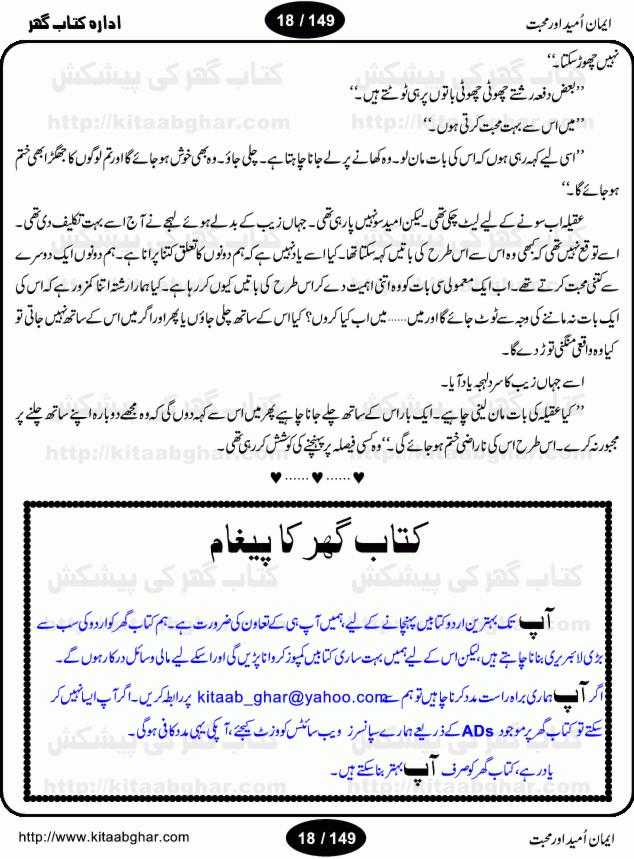 ایمان اُمید اور محبت
18 / 149
ادارہ کتاب گھر
نہیں چھوڑ سکتا۔‘‘
’’بعض دفعہ رشتے چھوٹی چھوٹی باتوں پر ہی ٹوٹتے ہیں۔‘‘
’’میں اس سے بہت محبت کرتی ہوں۔‘‘
’’اسی لیے کہہ رہی ہوں کہ اس کی بات مان لو۔ وہ کھانے پر لے جانا چاہتا ہے۔ چلی جاؤ۔ وہ بھی خوش ہو جائے گا اور تم لوگوں کا جھگڑا بھی ختم
ہو جائے گا۔‘‘
عقیلہ اب سونے کے لیے لیٹ چکی تھی۔ لیکن امید سو نہیں پا رہی تھی۔ جہاں زیب کے بدلے ہوئے لہجے نے آج اسے بہت تکلیف دی تھی۔
اسے توقع نہیں تھی کہ کبھی وہ اس سے اس طرح کی باتیں کہہ سکتا تھا۔ کیا اسے یاد نہیں ہے کہ ہم دونوں کا تعلق کتنا پرانا ہے۔ ہم دونوں ایک دوسرے
سے کتنی محبت کرتے تھے۔ اب ایک معمولی سی بات کو وہ اتنی اہمیت دے کر اس طرح کی باتیں کیوں کر رہا ہے۔ کیا ہمارا رشتہ اتنا کمزور ہے کہ اس کی
ایک بات نہ ماننے کی وجہ سے ٹوٹ جائے گا اور میں...... میں اب کیا کروں؟ کیا اس کے ساتھ چلی جاؤں یا پھر اور اگر میں اس کے ساتھ نہیں جاتی تو
کیا وہ واقعی منگنی توڑ دے گا۔
اسے جہاں زیب کا سرد لہجہ یاد آیا۔
’’کیا عقیلہ کی بات مان لینی چاہیے۔ ایک بار اس کے ساتھ چلے جانا چاہیے پھر میں اس سے کہہ دوں گی کہ وہ مجھے دوبارہ اپنے ساتھ چلنے پر
مجبور نہ کرے۔ اس طرح اس کی ناراضی ختم ہو جائے گی۔‘‘ وہ کسی فیصلہ پر پہنچنے کی کوشش کر رہی تھی۔
♥ ...... ♥ ...... ♥
کتاب گھر کا پیغام
آپ تک بہترین اردو کتابیں پہنچانے کے لیے ہمیں آپ ہی کے تعاون کی ضرورت ہے۔ ہم کتاب گھر کو اردو کی سب سے
بڑی لائبریری بنانا چاہتے ہیں، لیکن اس کے لیے ہمیں بہت ساری کتابیں کمپوز کروانا پڑیں گی اور اسکے لیے مالی وسائل درکار ہوں گے۔
اگر آپ ہماری براہ راست مدد کرنا چاہیں تو ہم سے kitaab_ghar@yahoo.com پر رابطہ کریں۔ اگر آپ ایسا نہیں کر
سکتے تو کتاب گھر پر موجود ADs کے ذریعے ہمارے سپانسرز ویب سائٹس کو وزٹ کیجئے، آپکی یہی مدد کافی ہوگی۔
یاد رہے، کتاب گھر کو صرف آپ بہتر بنا سکتے ہیں۔
http://www.kitaabghar.com
18 / 149
ایمان اُمید اور محبت